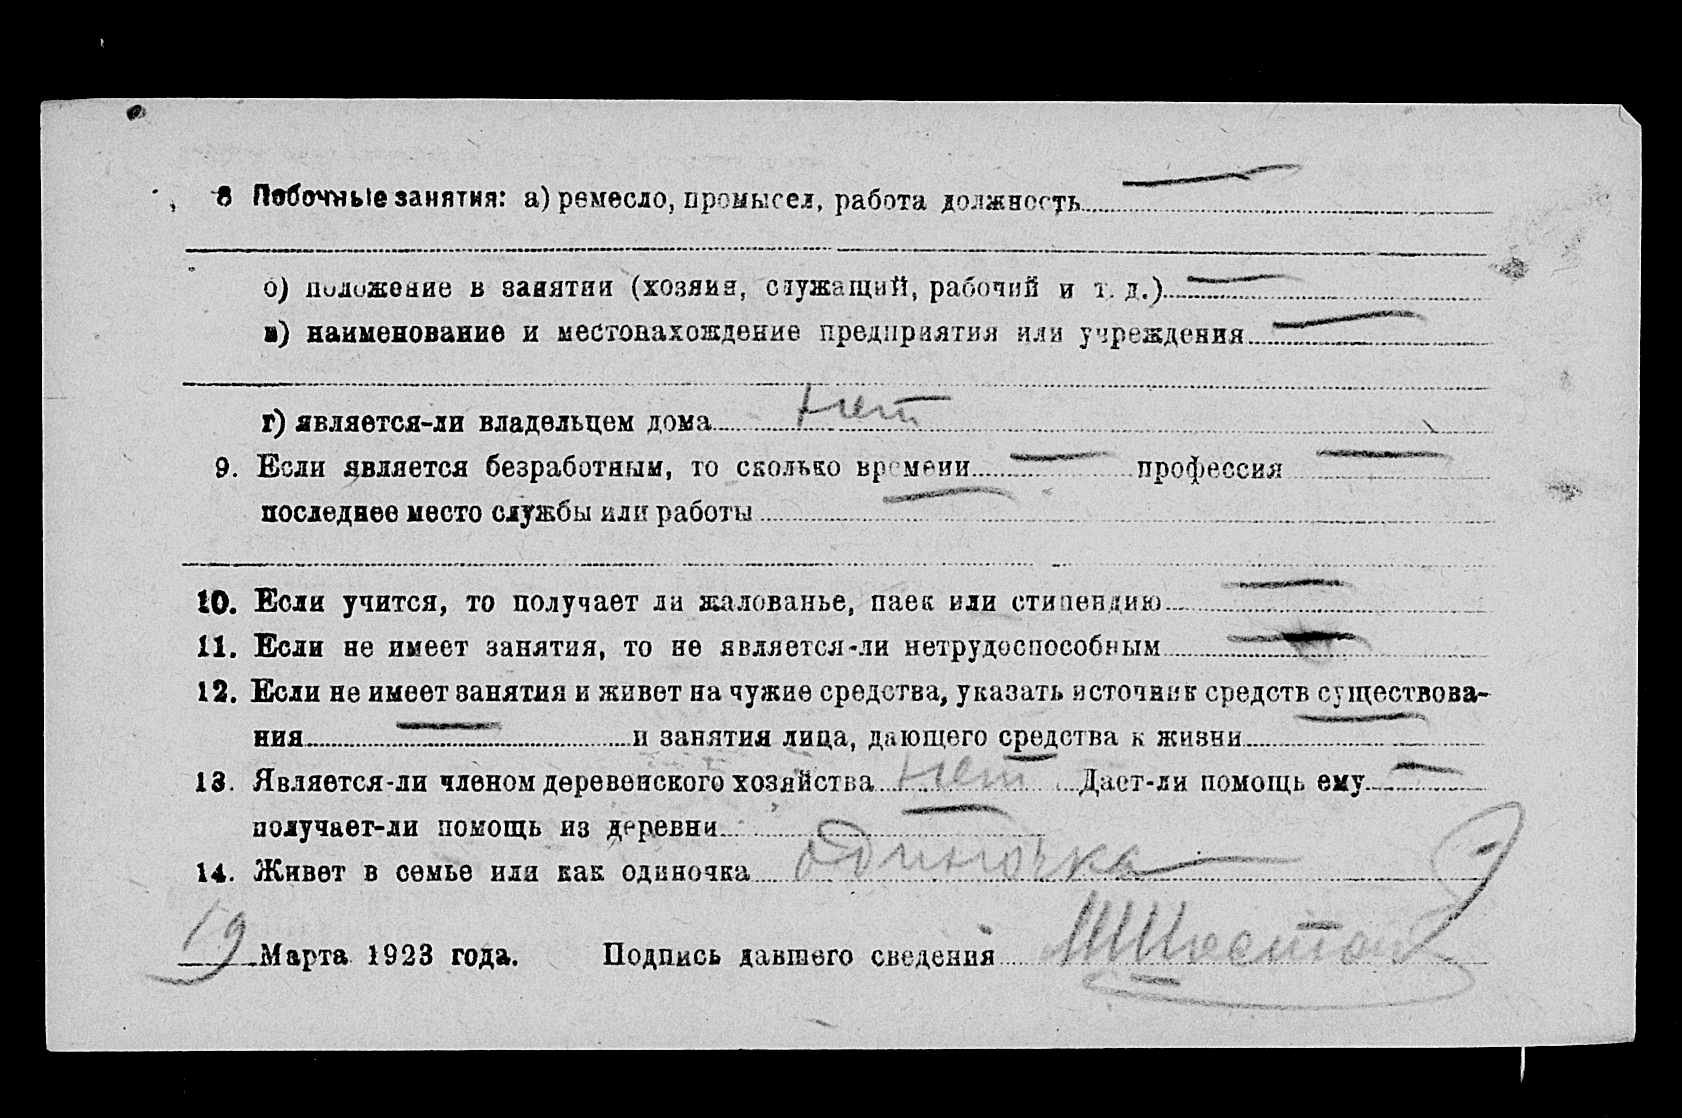 8 Побочные занятия: а) ремесло, промысел, работа должность —
б) положение в занятии (хозяин, служащий, рабочий и т. д.) —
в) наименование и местонахождение предприятия или учреждения —
г) является-ли владельцем дома нет
9. Если является безработным, то сколько времени — профессия —
последнее место службы или работы —
10. Если учится, то получает ли жалованье, паек или стипендию —
11. Если не имеет занятия, то не является-ли нетрудоспособным —
12. Если не имеет занятия и живет на чужие средства, указать источник средств существова-
ния — и занятия лица, дающего средства к жизни —
13. Является-ли членом деревенского хозяйства нет Дает-ли помощь ему —
получает-ли помощь из деревни —
14. Живет в семье или как одиночка одиночка
19 Марта 1923 года. Подпись давшего сведения